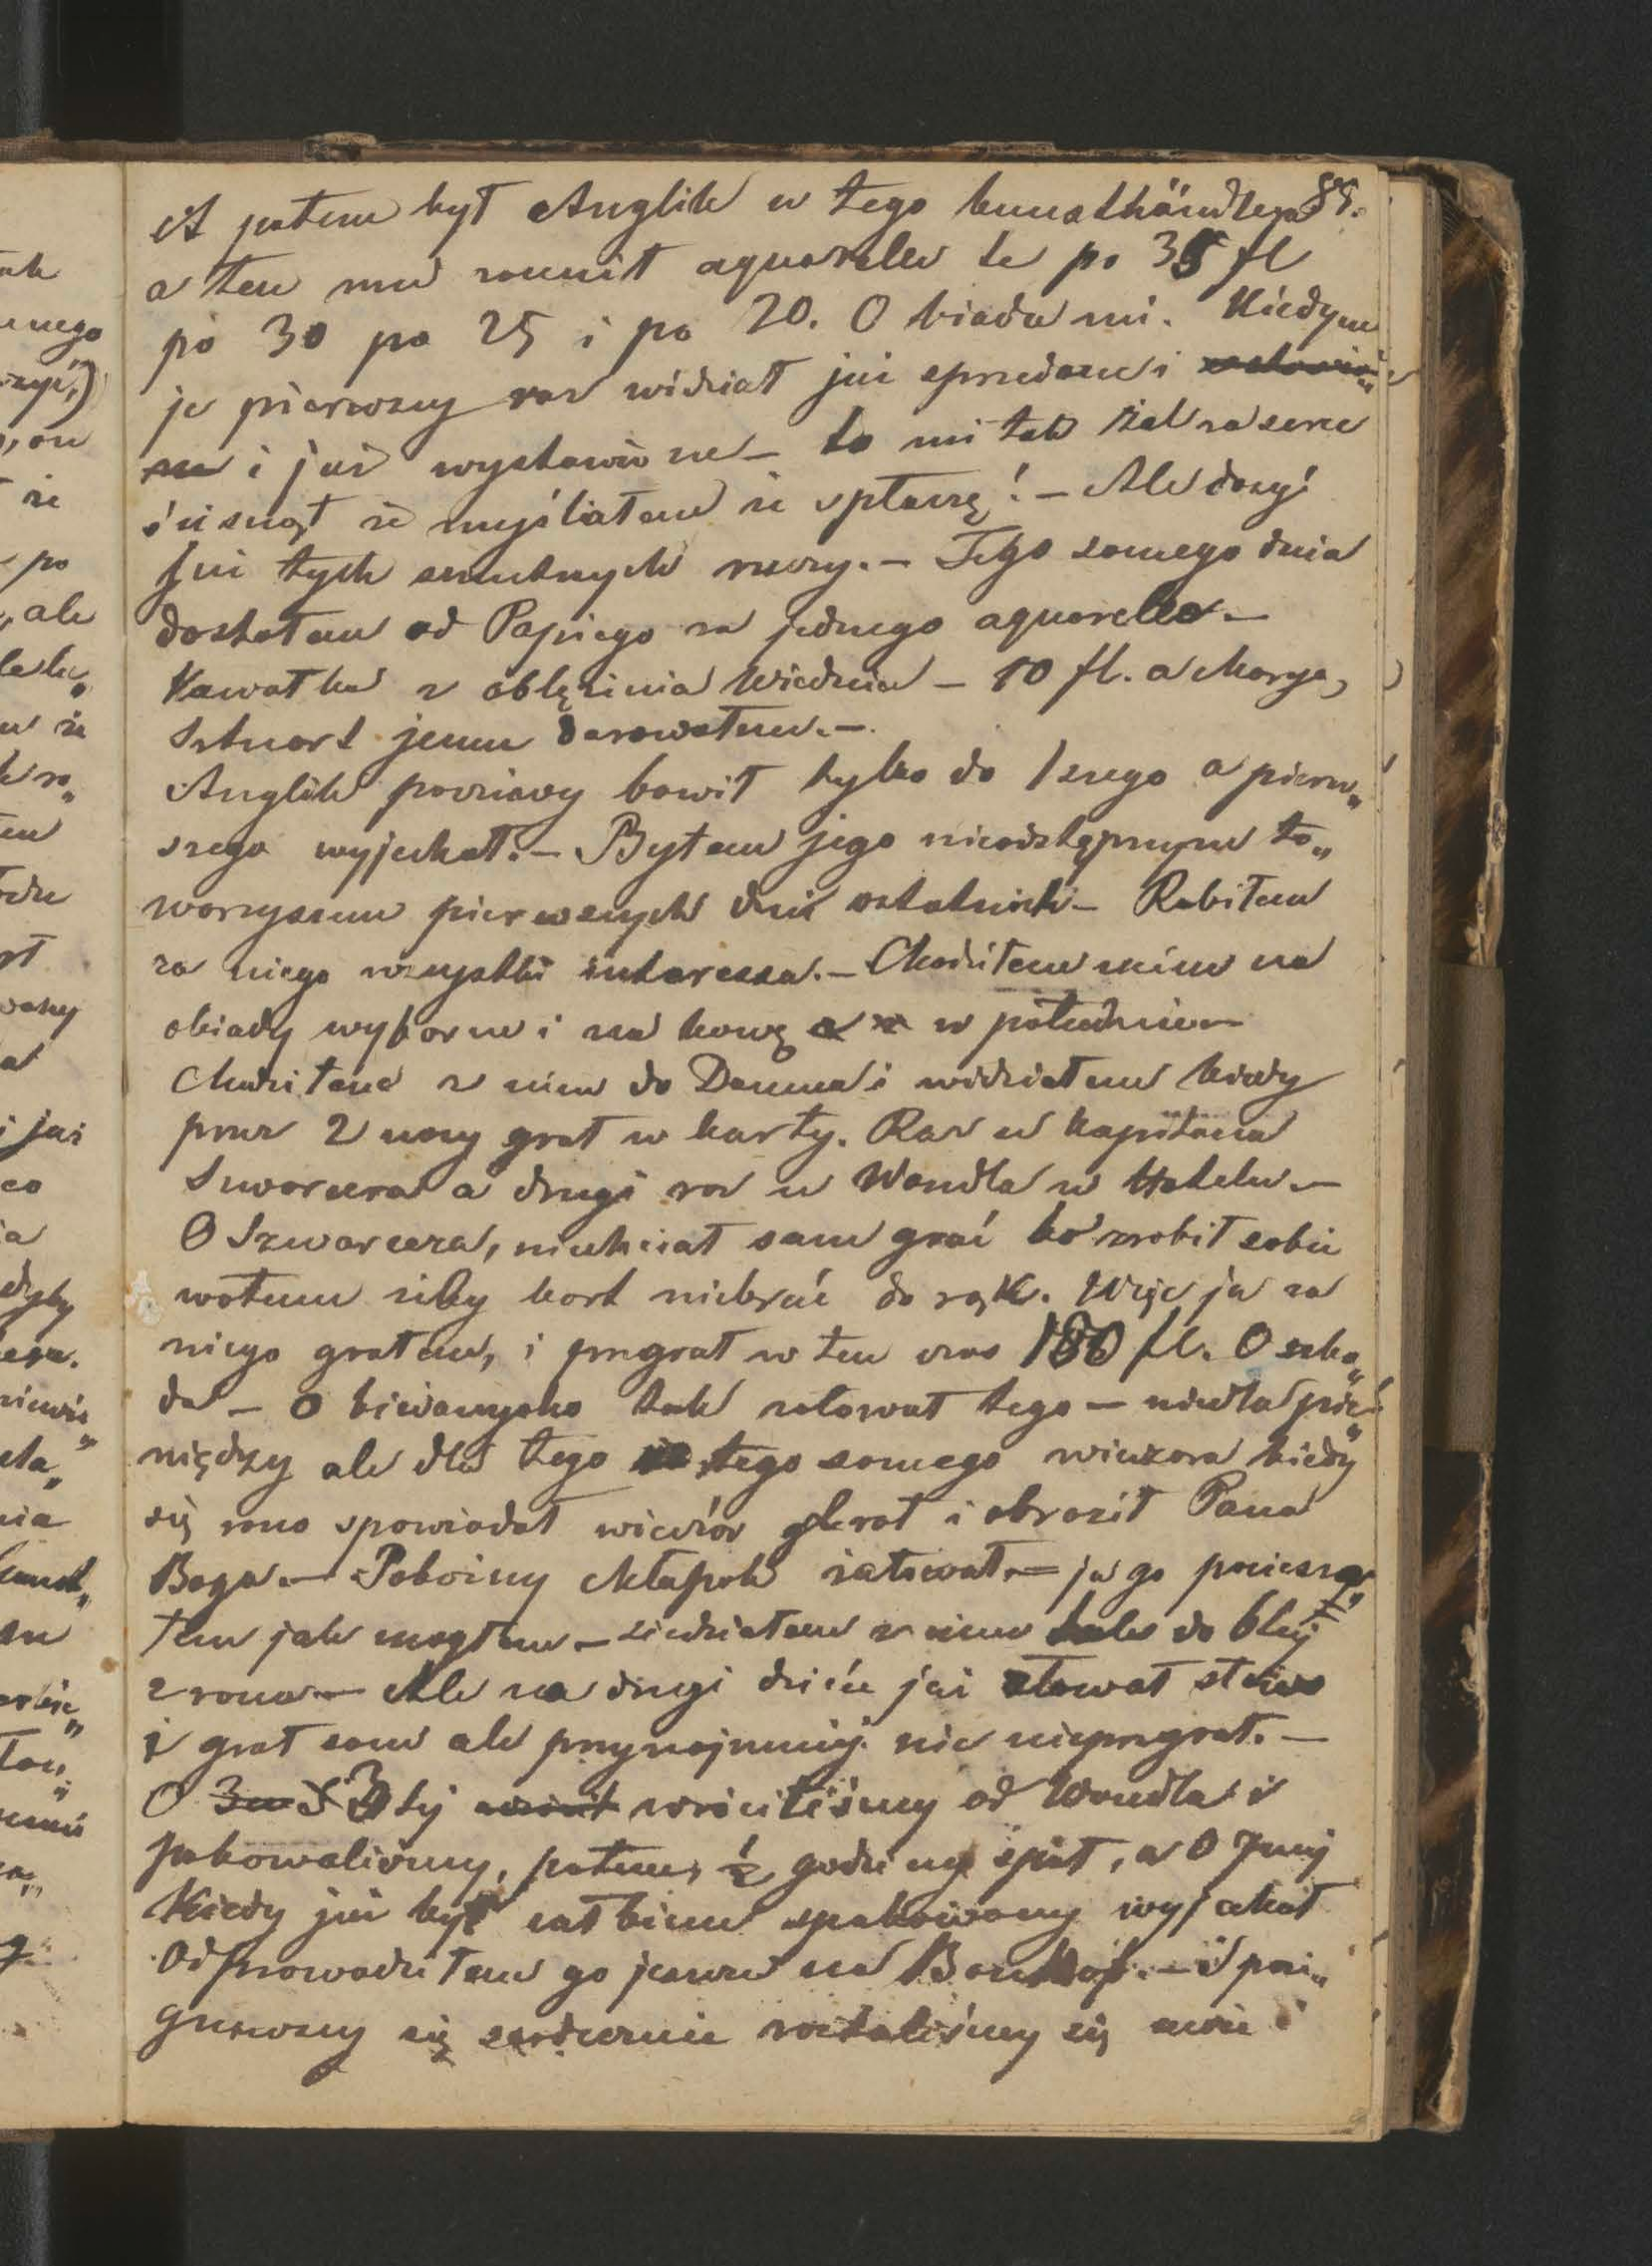 89.
A potem był Anglik w tego kunsthändlera
a ten mu zcenił aquarelle te po 35 fl
po 30 po 25 i po 20. O biada mi. Kiedym
je pierwszy raz widział już sprzedane i
i już wystawione – to mi tak żal za serce
ścisnął że myśliałem że spłaczę! – Ale dosyć
już tych smutnych rzeczy. – Tego samego dnia
dostałem od Papiego za jednego aquarella. –
Kawałka z oblężenia Wiednia – 10 fl. a Marya
Sztuart jemu darowałem. –
Anglik poczciwy bawił tylko do 1szego a pierw„
szego wyjechał. – Byłem jego nieodstępnym to„
warzyszem pierwszych dni ostatnich – Robiłem
za niego wszystkie interessa. – Chodziłem z nim na
obiady wyborne i na kawę w południe –
Chodziłem z nim do Damma i widziałem kiedy
przez 2 nocy grał w karty. Raz u kapitana
Szwarcera a drugi raz u Wandla w Hotelu. –
O Szwarcera, niechciał sam grać bo zrobił sobie
wotum żeby kart niebrać do rąk. Więc ja za
niego grałem, i przegrał w ten czas 180 fl. O szko„
da – O biedaczysko tak żałował tego – niedla pie„
niędzy ale dla tego że tego samego wieczora kiedy
się rano spowiadał wieczór grał i obraził Pana
Boga. – Pobożny chłapak żałował. – ja go pociesza„
łem jak mogłem – siedziałem z nim tak do 6tej
z rana – Ale na drugi dzień już złamał słowo
i grał sam ale przynajmniej nic nieprzegrał. –
O 3 tej wróciliśmy od Wandla i
pakowaliśmy, potem ½ godziny spał, a o 7mej
Kiedy już był całkiem spakowany wyjechał
Odprowadziłem go jeszcze na Banhof. – i poże„
gnawszy się serdecznie rozstaliśmy się